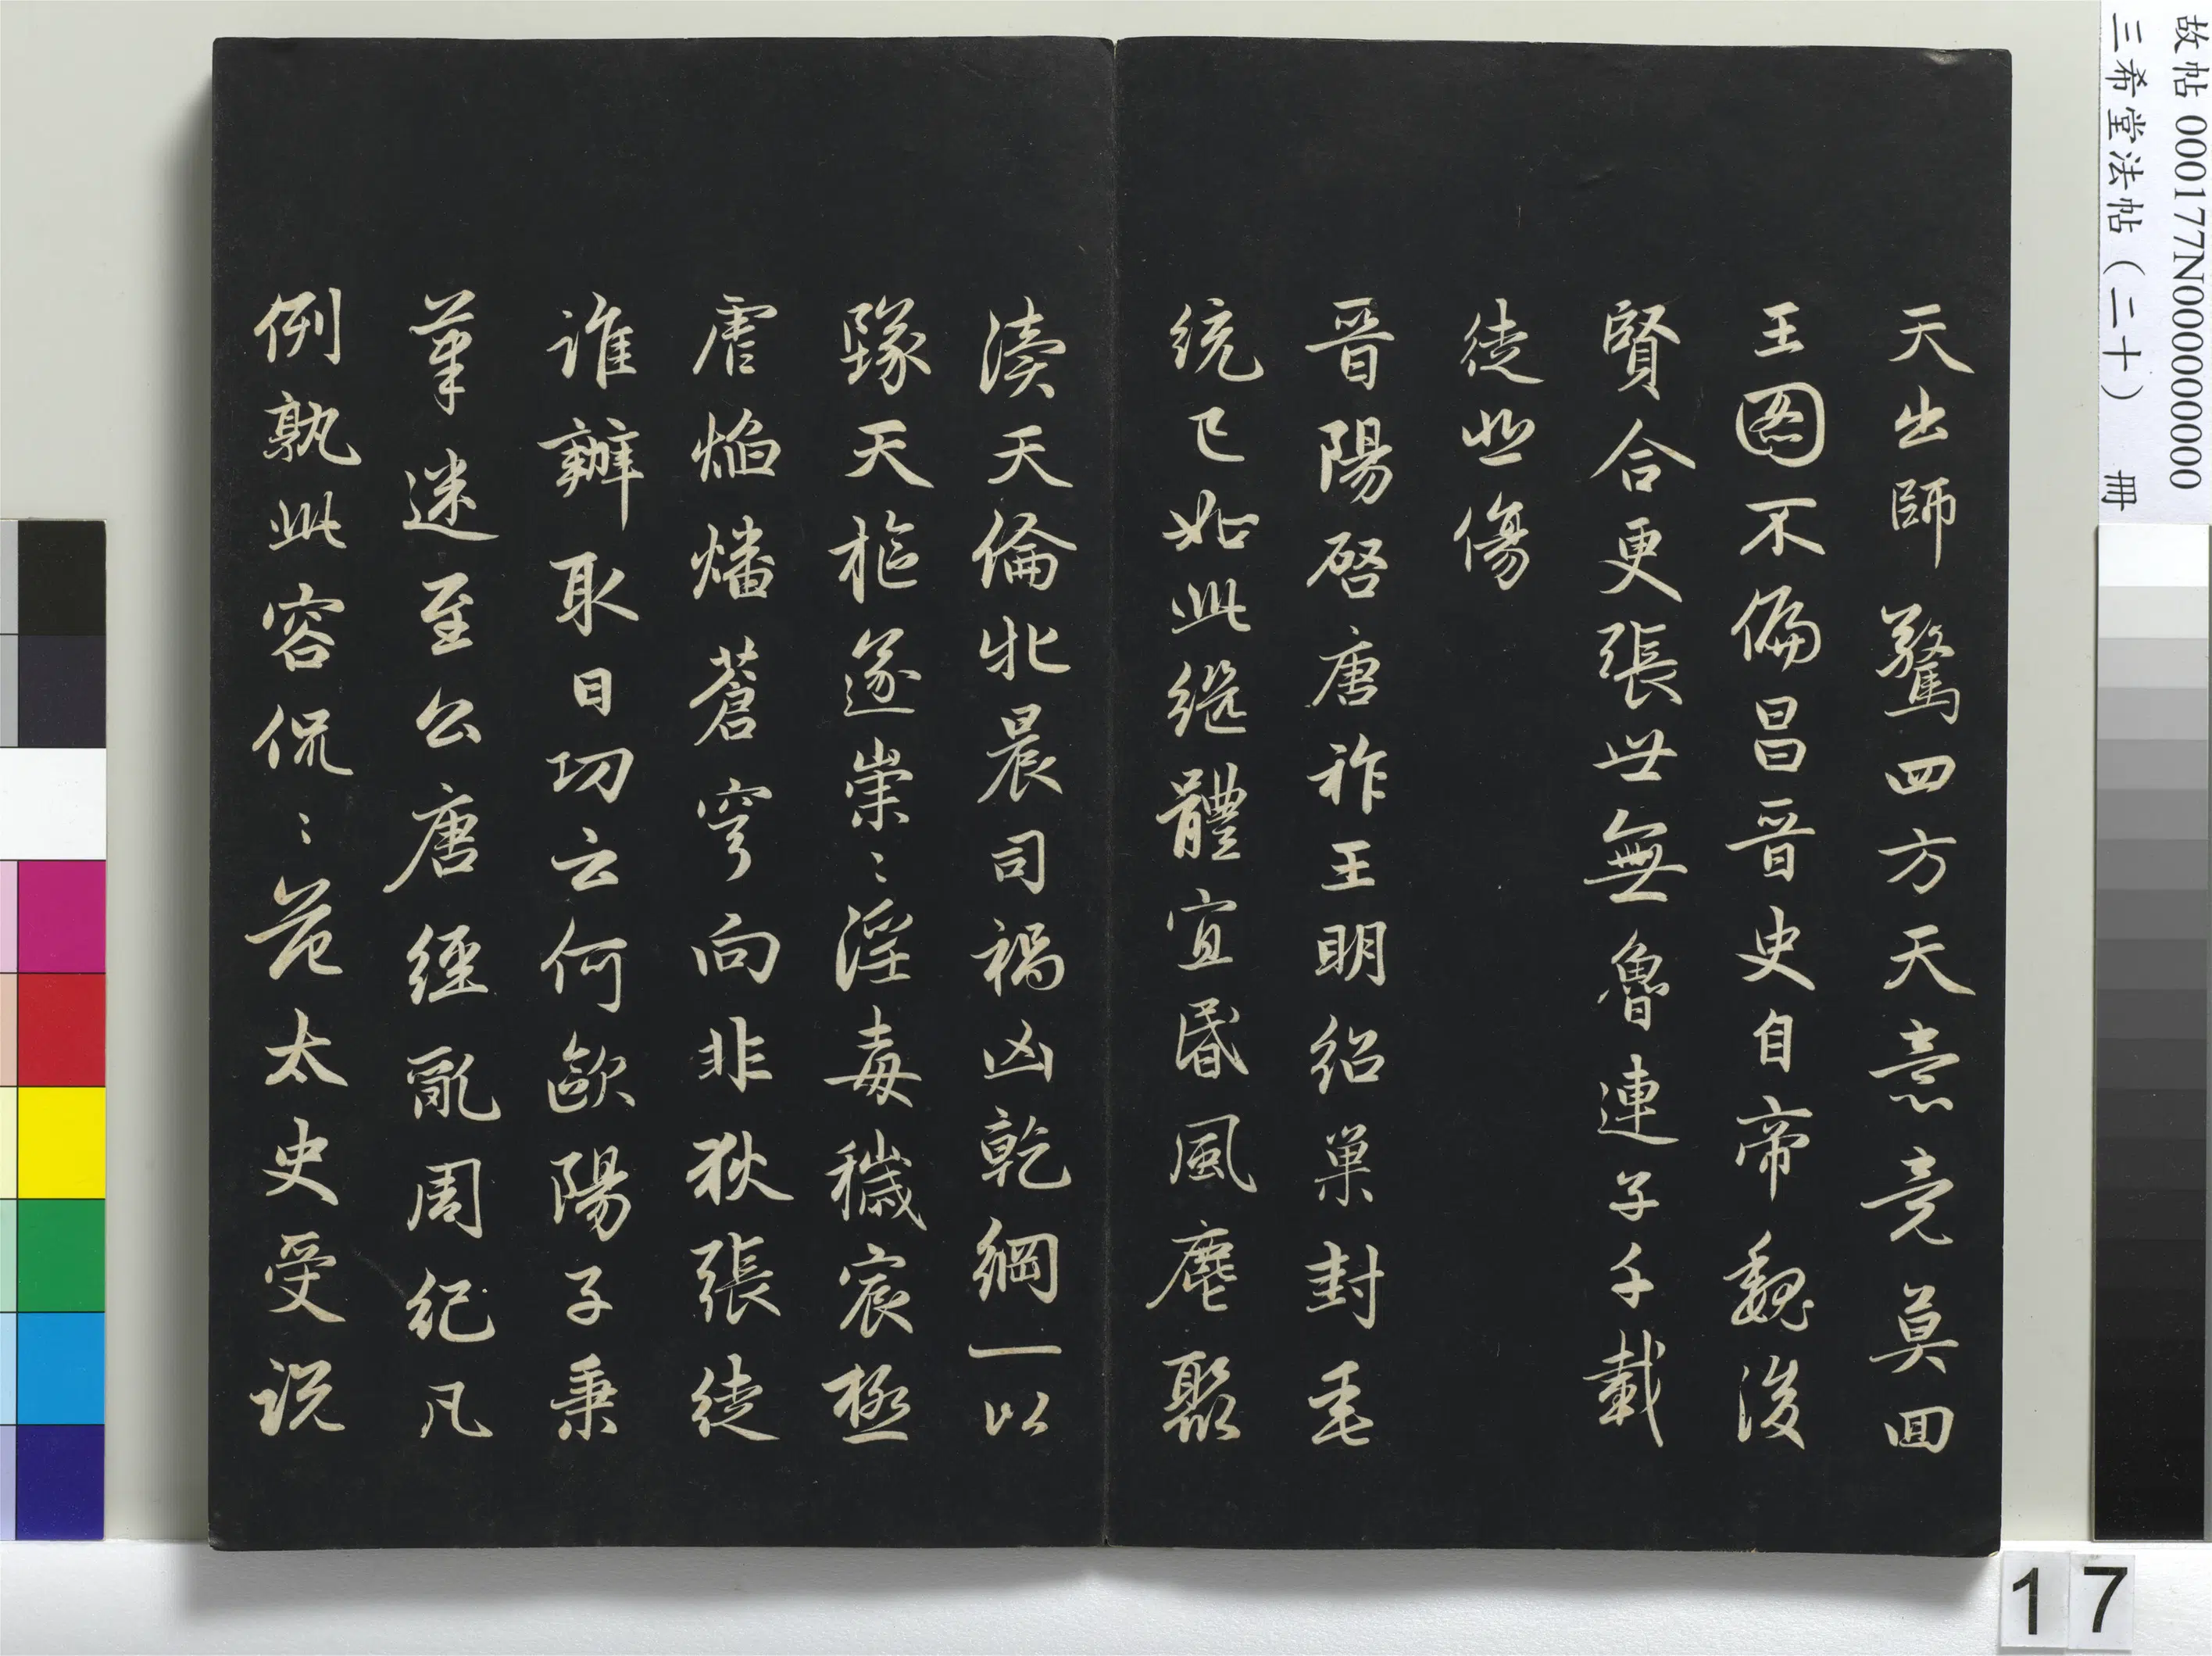 天出師驚四方天意竟莫回
王圖不偏昌晉史自帝魏後
賢合更張世無魯連子千載
徒悲傷
晉陽啓唐祚王明紹巢封垂
統已如此繼體宜昏風麀聚
瀆天倫牝晨司禍凶乾綱一以
墜天樞遂崇〻淫毒穢宸極
虐焰燔蒼穹向非狄張徒
誰辦取日功云何歐陽子秉
筆迷至公唐經亂周紀凡
例孰此容侃〻范太史受説
故帖 000177N000000000
三希堂法帖（二十） 冊
17